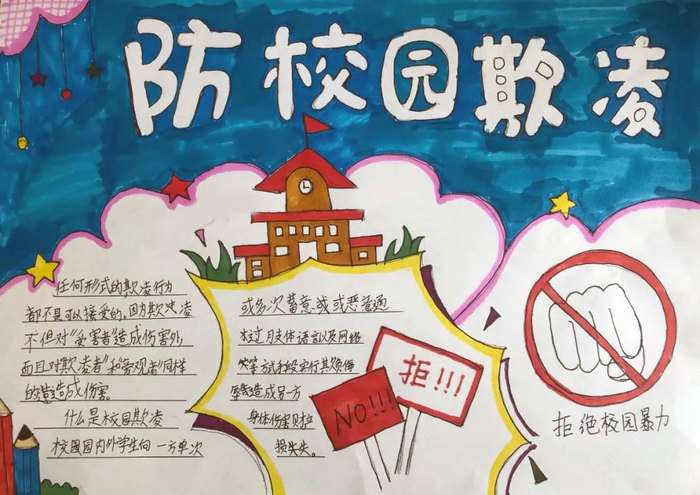 防校园欺凌
任何形式的欺凌行为
都不是可以接受的,因为欺凌
不但对“受害者”造成伤害外
而且对欺凌者”和“客观者”同样
的造成伤害
什么是校园欺凌
校园园内外学生向一方单次
或多次蓄意或或恶普通
过月支体语言以及网络
实行其欺侮
造成另一方
身体伤害
损失失。
拒!!!
NO!!!
拒绝校园暴力